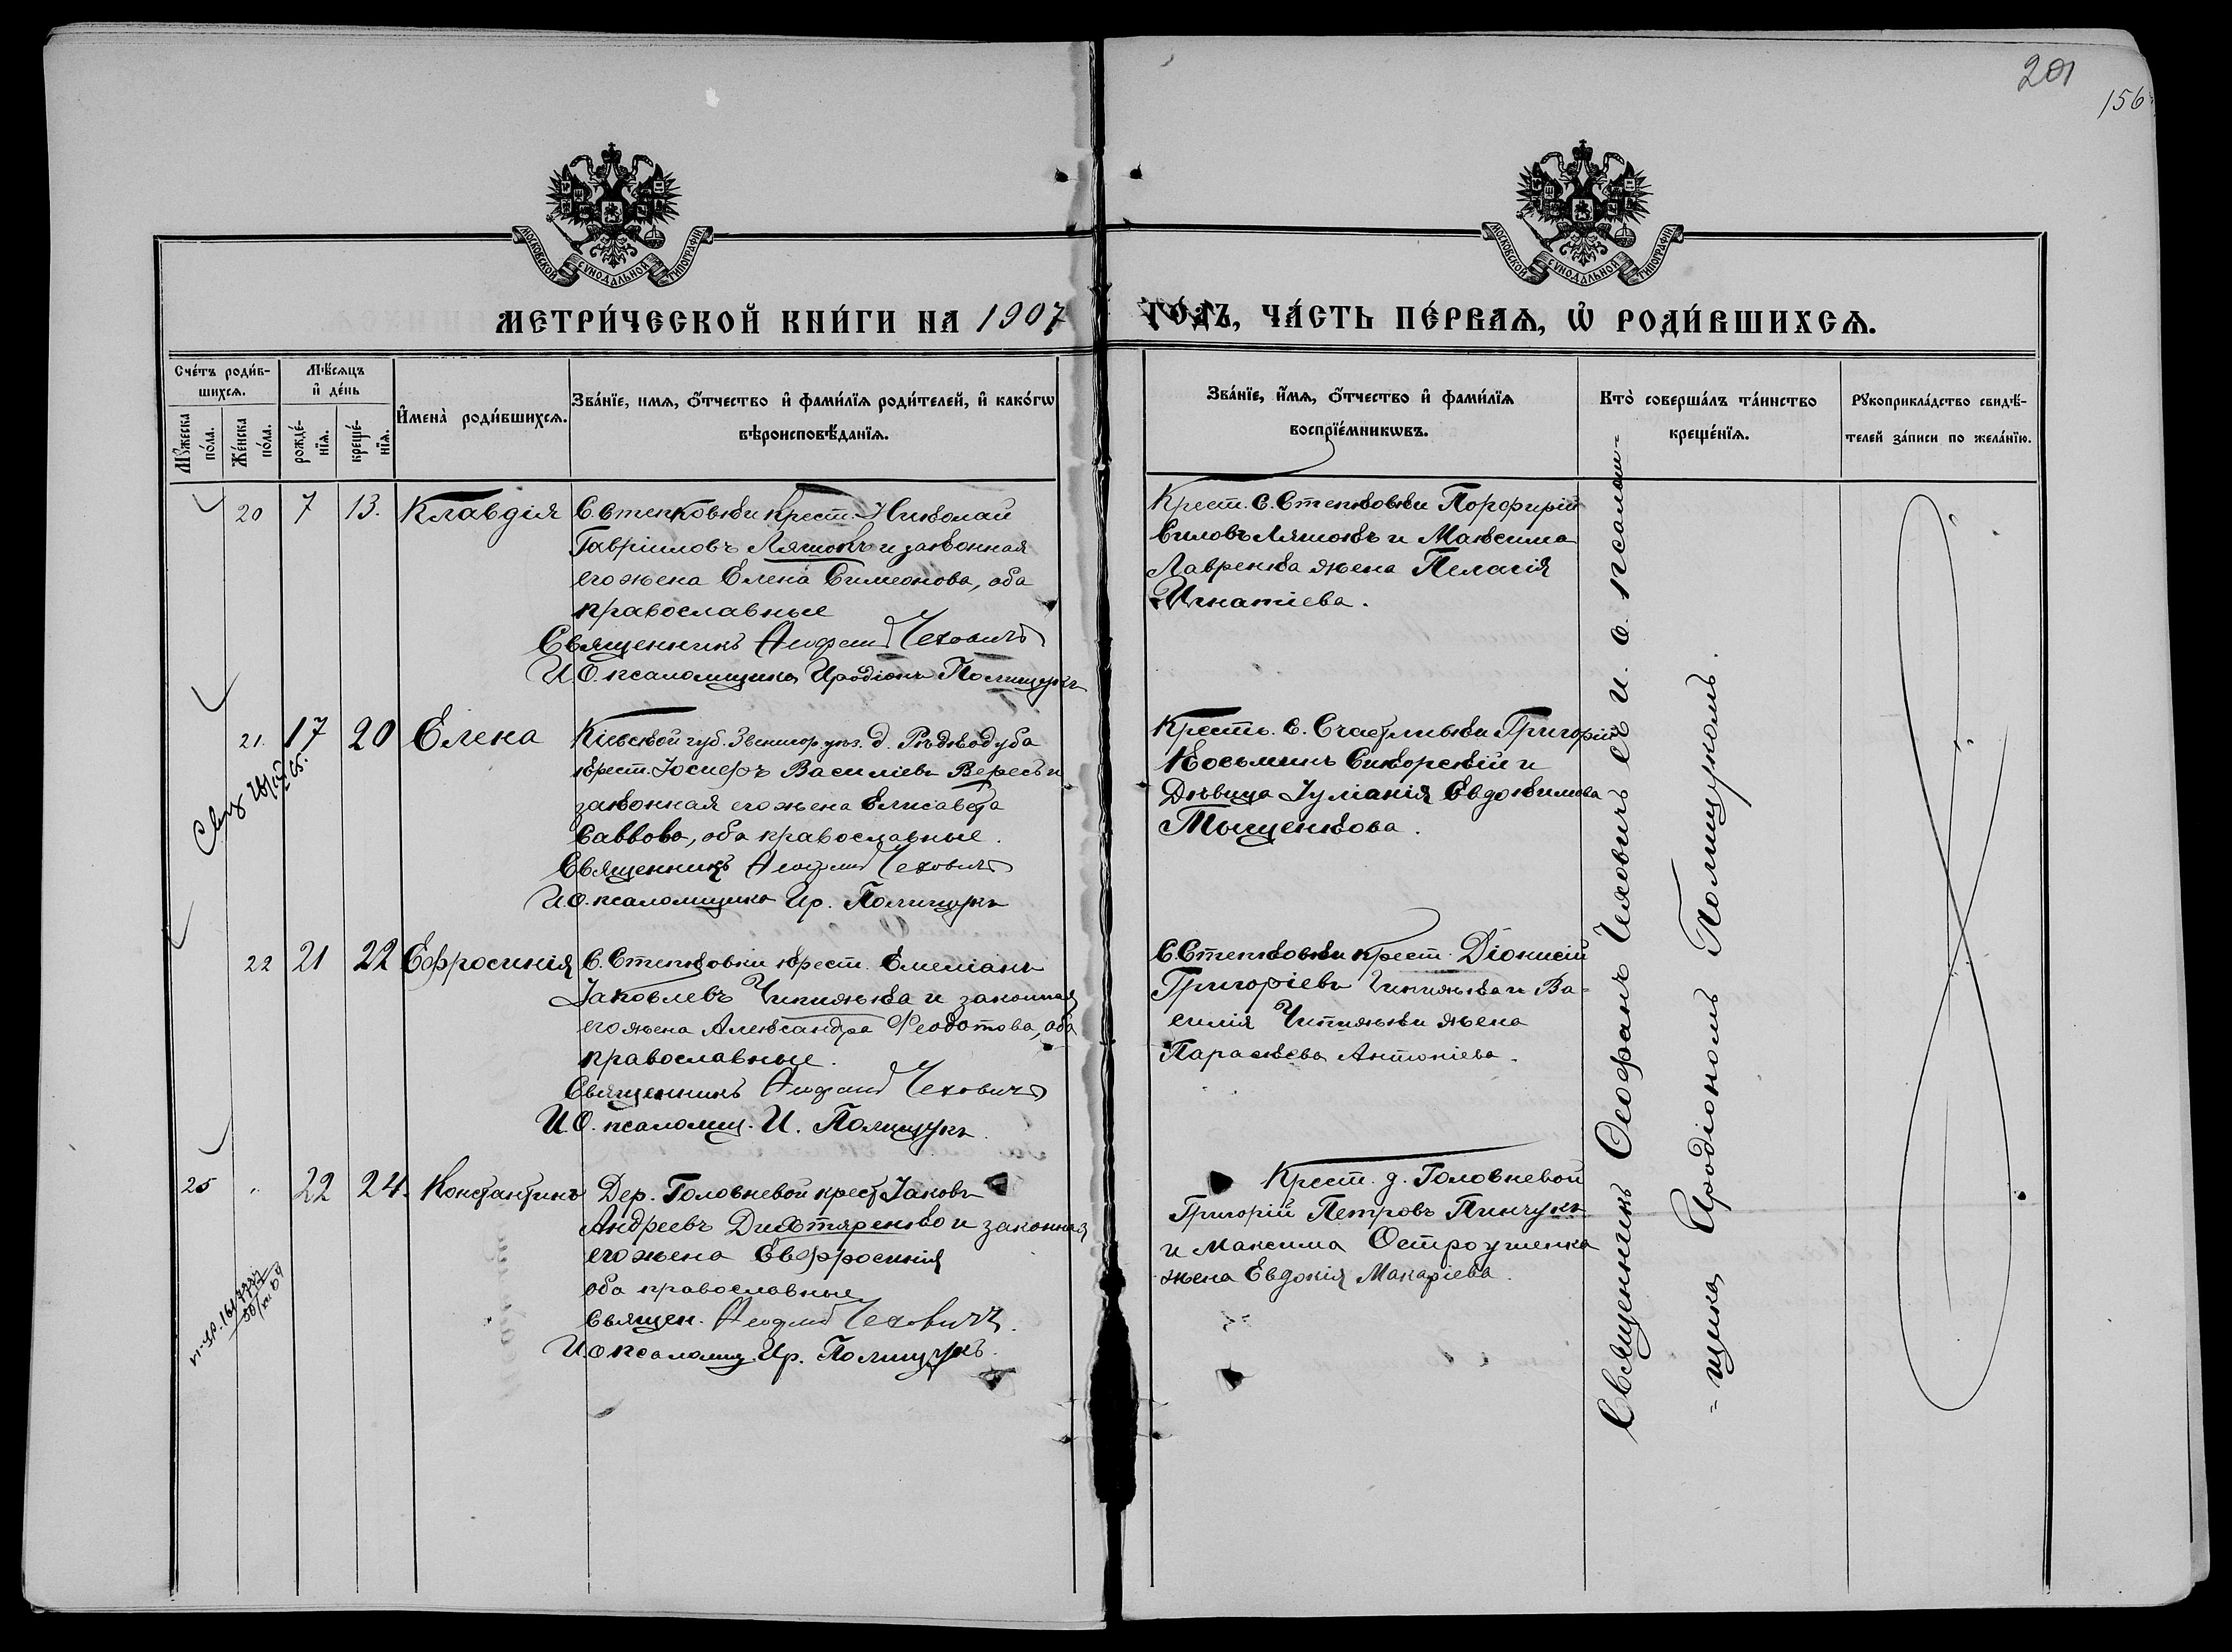 201
156
МОСКОВСКОЙ СѴНОДАЛЬНОЙ ТИПОГРАФІИ
МОСКОВСКОЙ СѴНОДАЛЬНОЙ ТИПОГРАФІИ
МЕТРИ́ЧЕСКОЙ КНИ́ГИ НА 1907 ГО́ДЪ, ЧА́СТЬ ПЕ́РВАѦ, Ѡ҆ РОДИ́ВШИХСѦ.
Сче́тъ роди́в-
шихсѧ.
Мꙋ́жеска по́ла.
Же́нска по́ла.
Мѣ́сѧцъ
и҆ де́нь
рожде́-
нїѧ.
креще́-
нїѧ.
И҆мена̀ роди́вшихсѧ.
Зва́нїе, имѧ, ѻ҆́тчество и҆ фами́лїѧ роди́телей, и҆ како́гѡ
вѣроисповѣ́данїѧ.
Зва́нїе, и҆́мѧ, ѻ҆́тчество и҆ фами́лїѧ
воспрїе́мникѡвъ.
Кто̀ соверша́лъ та́инство
креще́нїѧ.
Рꙋкоприкла́дство свидѣ́-
телей за́писи по жела́нїю.
20 7 13. Клавдія
С. Степковки крест. Николай
Гавріиловъ Ляшокъ и законная
его жена Елена Симеонова, оба
православные
Священникъ Ѳеофанъ Чеховичъ
И.О. псаломщика Иродіонъ Полищукъ
Крест. С. Степковки Порфирій
Силовъ Ляшокъ и Максима
Лавренка жена Пелагія
Игнатіева.
21. 17 20 Елена
Кіевской губ. Звенигор. уѣз. д. Рѣдкодуба
крест. Іосифъ Василіевъ Вересъ и
законная его жена Елисавета
Саввова, оба православные.
Священникъ Ѳеофанъ Чеховичъ
И.О. псаломщика Ир. Полищукъ
Крестъ. С. Счастливки Григорій
Косьминъ Сикорскій и
Дѣвица Іуліанія Евдокимова
Мыщенкова.
22 21 22 Ефросинія
С. Степковки крест. Емеліанъ
Іаковлевъ Чипижка и законная
его жена Александра Ѳеодотова, оба
православные.
Священникъ Ѳеофанъ Чеховичъ
И.О. псаломщ. И. Полищукъ.
С. Степковки крест. Діонисій
Григоріевъ Чипижка и Ва-
силія Чипижки жена
Параскева Антоніева.
25 " 22 24. Константинъ
Дер. Головневой крест. Іаковъ
Андреевъ Дихтяренко и законная
его жена Евфросинія
оба православные
Священ. Ѳеофанъ Чеховичъ.
И.О псаломщ. Ир. Полищукъ.
Крест. д. Головневой
Григорій Петровъ Пинчукъ
и Максима Остроушенка
жена Евдокія Макаріева.
Священникъ Ѳеофанъ Чеховичъ съ и. о. псалом-
-щика Иродіономъ Полищукомъ.